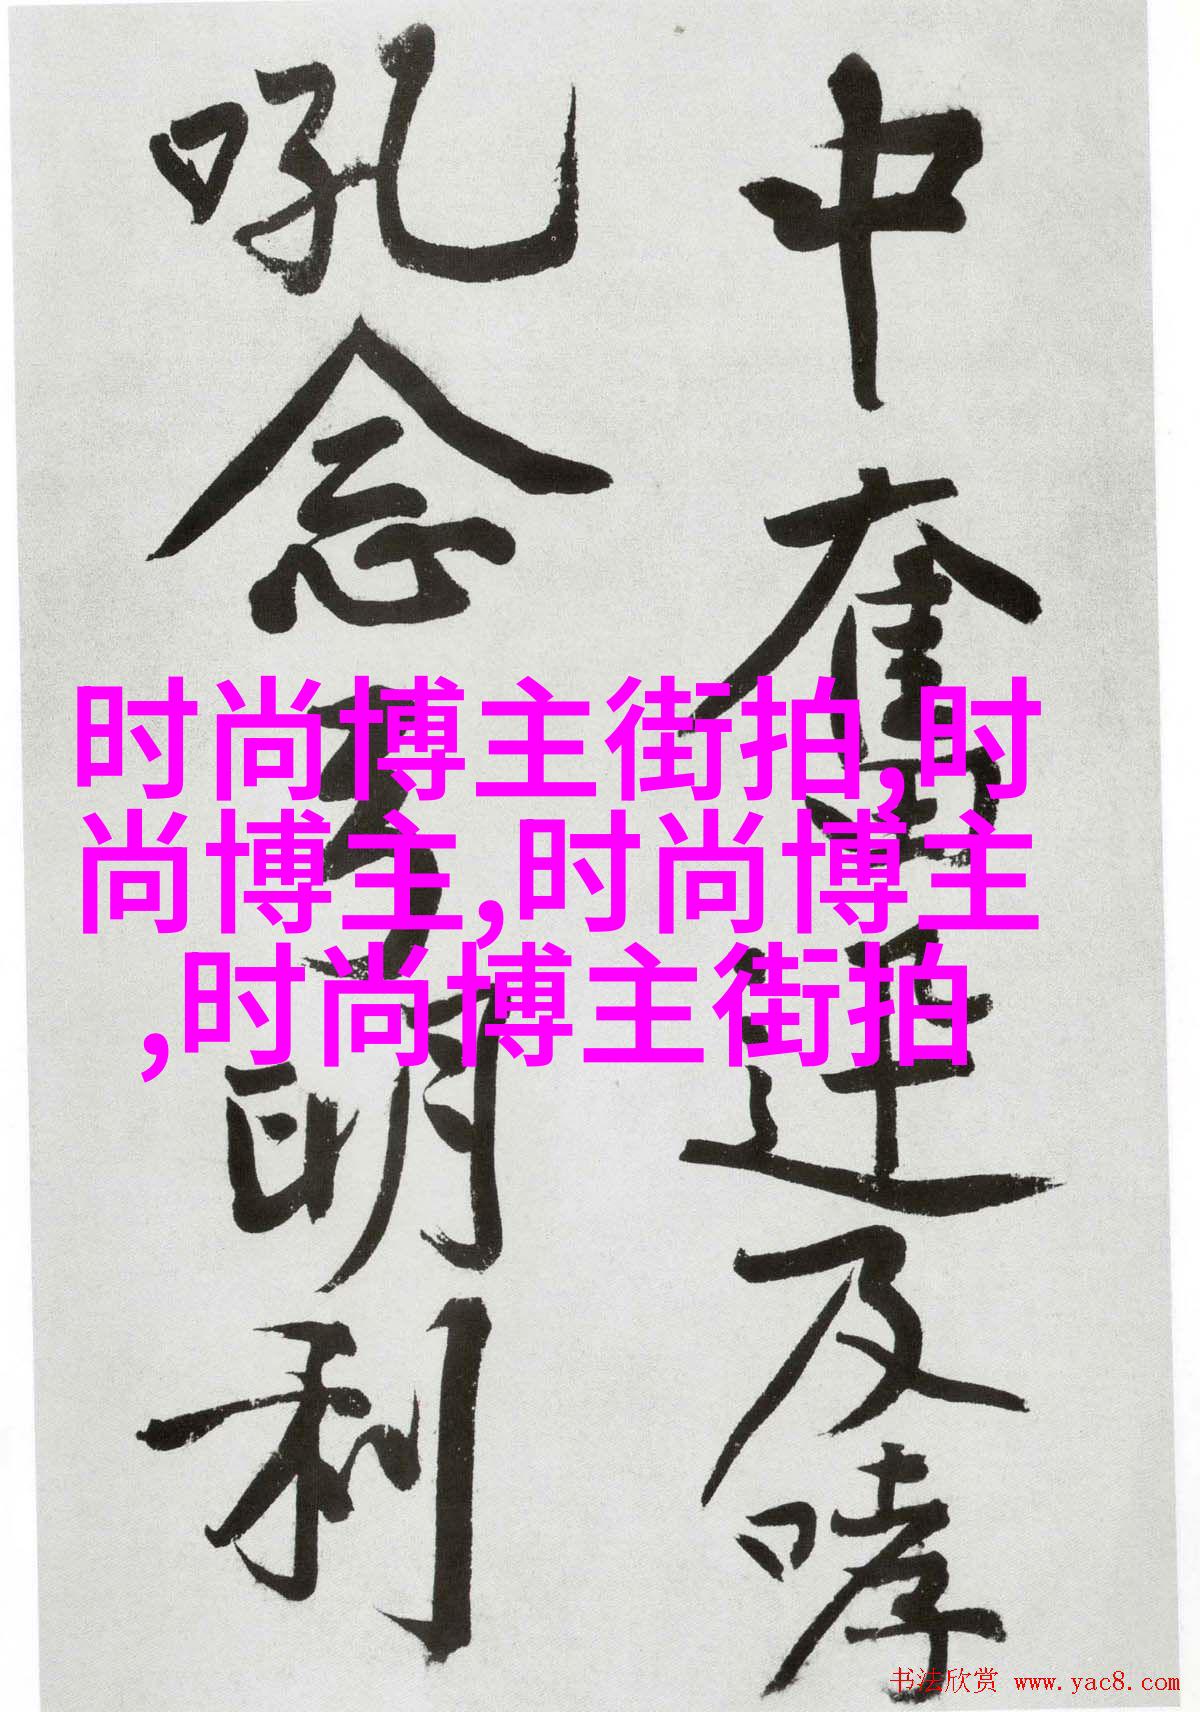 中奮迅及哮
吼念明利
时尚博主街拍,时
尚博主,时尚博主
,时尚博主街拍
书法欣赏 www.yac8.com